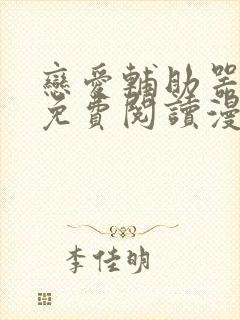 戀愛輔助器
免費閱讀漫
李佳明